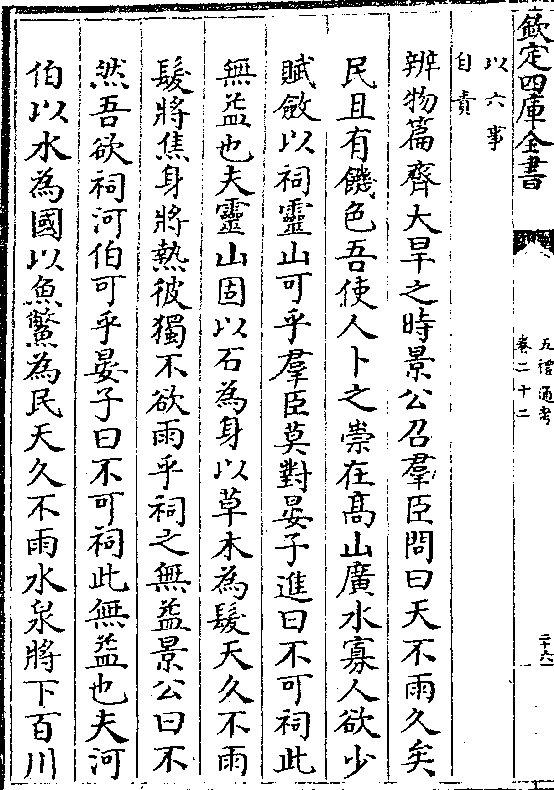 欽定四庫全書
五禮通考
卷二十二
二十六
以六事
自責
辨物篇齊大旱之時景公召羣臣問曰天不雨久矣
民且有饑色吾使人卜之祟在髙山廣水寡人欲少
賦斂以祠靈山可乎羣臣莫對晏子進曰不可祠此
無益也夫靈山固以石為身以草木為髮天久不雨
髮將焦身將熱彼獨不欲雨乎祠之無益景公曰不
然吾欲祠河伯可乎晏子曰不可祠此無益也夫河
伯以水為國以魚鱉為民天久不雨水泉將下百川